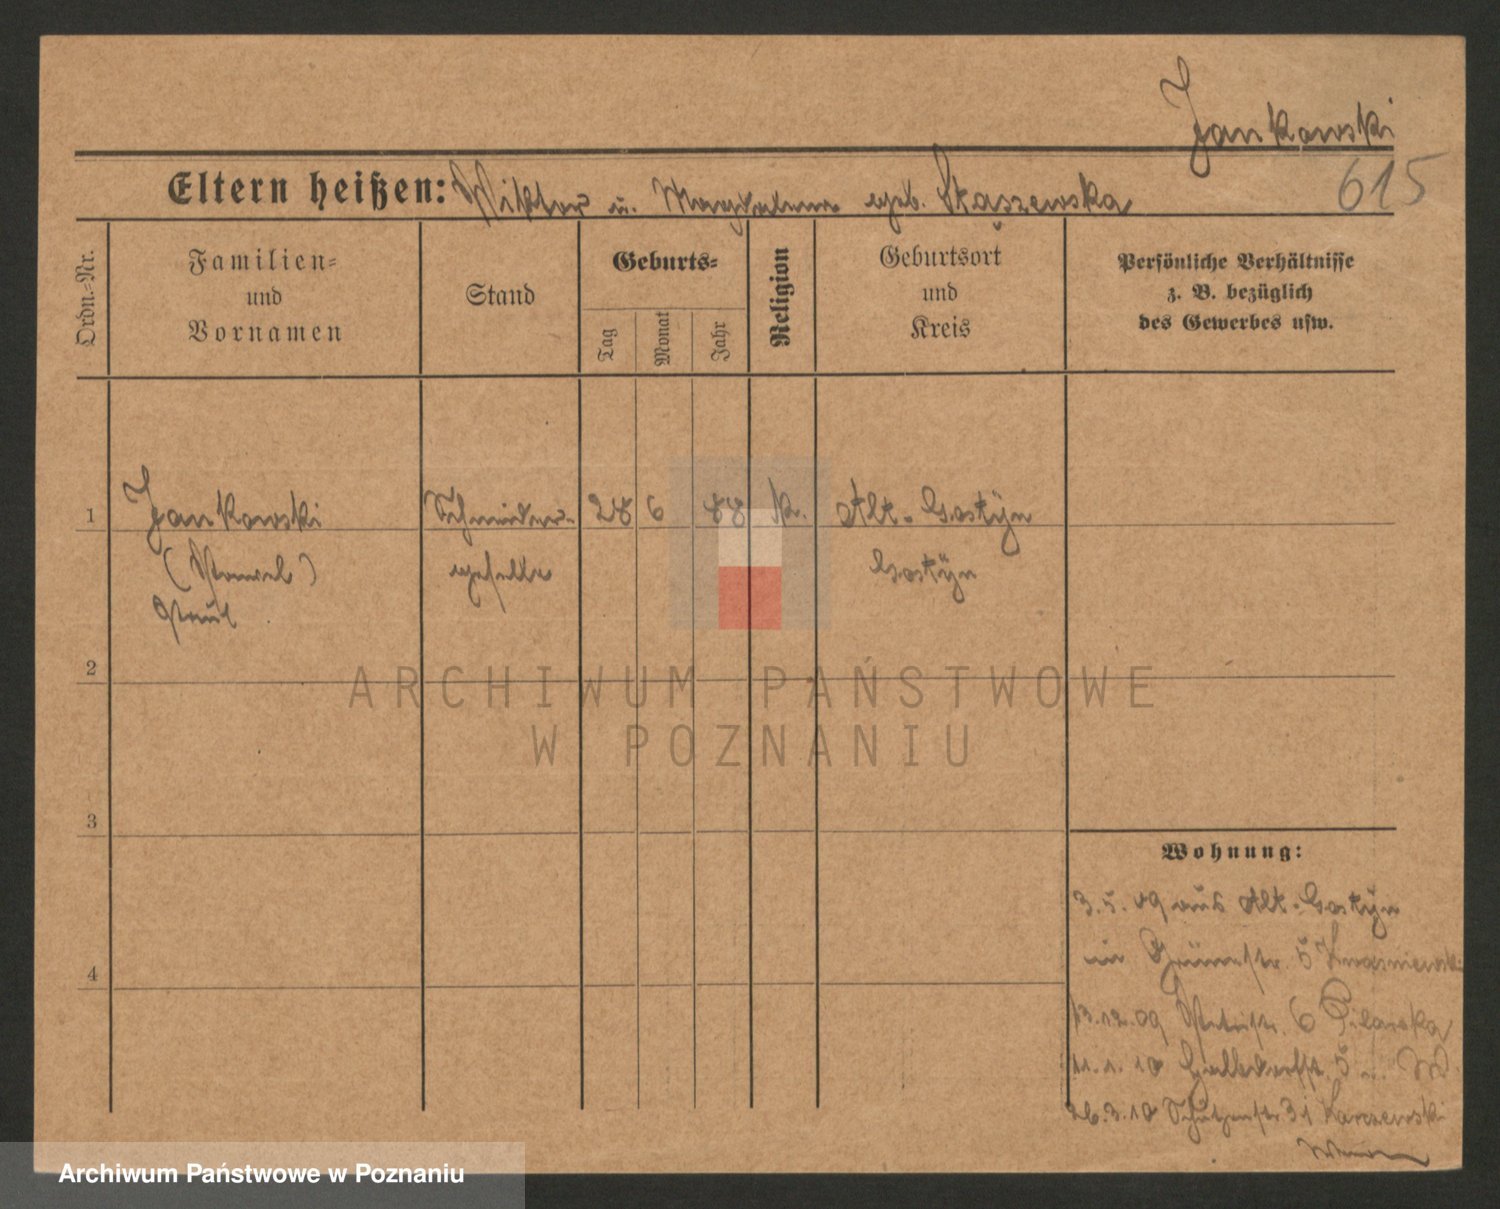 Jankowski
615
Eltern heißen: Wiktor u. Magdalena geb. Skąszewska
Ordn.-Nr.
Familien-
und
Vornamen
Stand
Geburts-
Tag
Monat
Jahr
Religion
Geburtsort
und
Kreis
Persönliche Verhältnisse
z. B. bezüglich
des Gewerbes usw.
1 Jankowski Schneider- 28 6 88 k. Alt-Gostyn
(Pawel) geselle Gostyn
Paul
2
ARCHIWUM PAŃSTWOWE
W POZNANIU
3
Wohnung:
3.5.09 aus Alt-Gostyn
in Grünestr. 5 Kwasniewski
13.12.09 6 Pilarska
11.1.10 5
26.3.10 Schützenstr 31
4
Archiwum Państwowe w Poznaniu